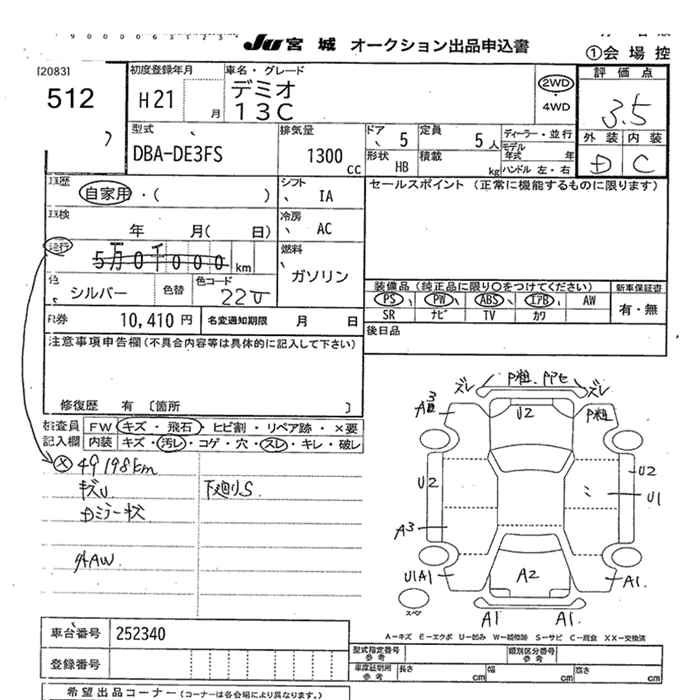 JU 宮城 オークション出品申込書
①会場控
[2083]
512
初度登録年月
H21 月
車名・グレード
デミオ
13C
2WD
・
4WD
評価点
3.5
外装 内装
D C
型式
DBA-DE3FS
排気量
1300 CC
ドア 5
形状 HB
定員 5人
積載 kg
ディーラー・並行
モデル年式 年
ハンドル 左・右
歴
自家用・( )
シフト IA
セールスポイント (正常に機能するものに限ります)
検
年 月( 日)
冷房 AC
走行
5万0千000 km
燃料
ガソリン
色
シルバー
色替
色コード
22V
装備品 (純正品に限り○をつけてください)
新車保証書
PS PW ABS エアB AW
SR ナビ TV カワ
有・無
R券 10,410円
名変通知期限 月 日
後日品
注意事項申告欄(不具合内容等は具体的に記入して下さい)
修復歴 有 〔箇所 〕
検査員
記入欄
FW キズ・飛石・ヒビ割・リペア跡・×要
内装 キズ・汚レ・コゲ・穴・スレ・キレ・破レ
× 49198km
キズU 下廻りS
Dミラーキズ
外AW
ズレ P粗. ズレ
A3
U2
P粗
U2
U2
U1
A3
U1A1
A2
A1.
スペア
A1 A1.
A－キズ E－エクボ U－凹み W－補修跡 S－サビ C－腐食 XX－交換済
車台番号 252340
登録番号
型式指定番号
参考
類別区分番号
参考
車庫証明用
参考
長さ cm 幅 cm 高さ cm
希望出品コーナー (コーナーは各会場により異なります。)